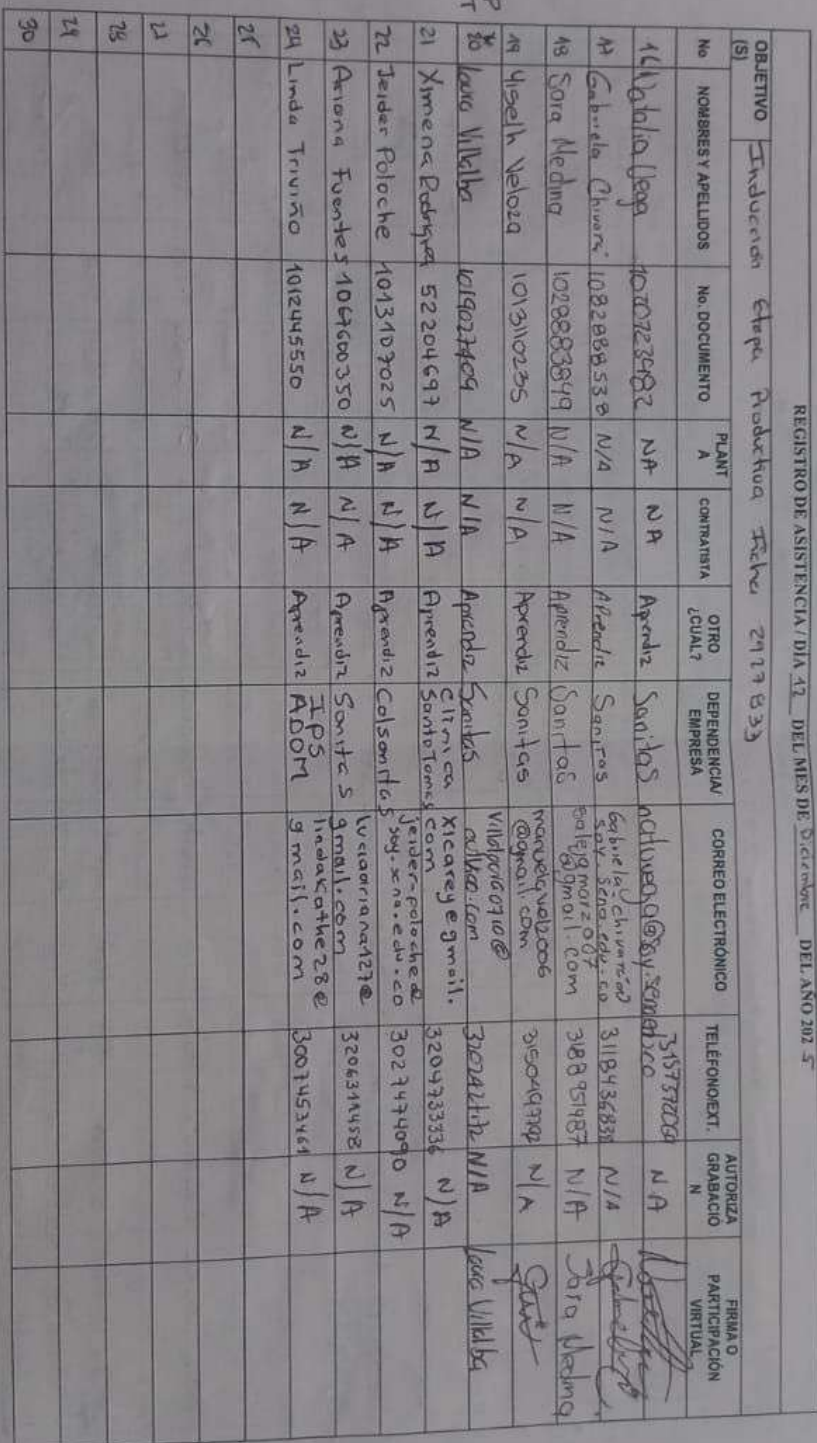 REGISTRO DE ASISTENCIA / DÍA 12 DEL MES DE Diciembre DEL AÑO 2025
OBJETIVO (S) Inducción Etapa Productiva Ficha 2927833
No NOMBRES Y APELLIDOS No. DOCUMENTO PLANTA CONTRATISTA OTRO ¿CUAL? DEPENDENCIA/ EMPRESA CORREO ELECTRÓNICO TELÉFONO/EXT. AUTORIZA GRABACIÓN FIRMA O PARTICIPACIÓN VIRTUAL
16 Natalia Vega NA NA Aprendiz Sanitas NA
17 Gabriela Chivará 1082888538 N/A N/A Aprendiz Sanitas N/A
18 Sara Medina 1028883849 N/A N/A Aprendiz Sanitas salejamarzo07@gmail.com 3188951487 N/A Sara Medina
19 Yiselh Veloza 1013110235 N/A N/A Aprendiz Sanitas manuelavel2006@gmail.com N/A
20 Laura Villalba 1019027409 N/A N/A Aprendiz Sanitas N/A Laura Villalba
21 Ximena Rodriguez 52204697 N/A N/A Aprendiz Clinica Santo Tomas xicarey@gmail.com 3204733336 N/A
22 Jeider Poloche 1013107025 N/A N/A Aprendiz Colsanitas jeider-poloche@soy.sena.edu.co 3027474090 N/A
23 Ariana Fuentes 1067600350 N/A N/A Aprendiz Sanitas luciaariana127@gmail.com N/A
24 Linda Triviño 1012445550 N/A N/A Aprendiz IPS ADOM lindakathe28@gmail.com 3007453461 N/A
25
26
27
28
29
30